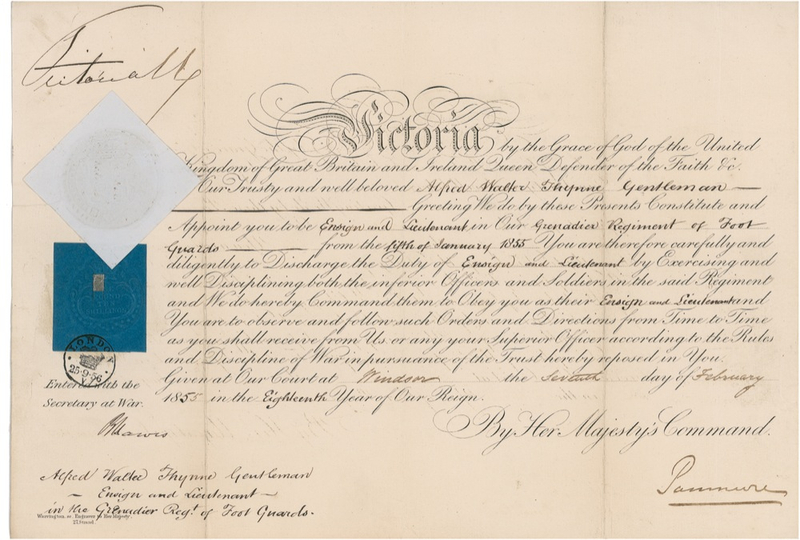 Victoria R
Victoria by the Grace of God of the United
Kingdom of Great Britain and Ireland Queen Defender of the Faith &c.
Our Trusty and well beloved Alfred Walter Thynne Gentleman
Greeting We do by these Presents Constitute and
Appoint you to be Ensign and Lieutenant in Our Grenadier Regiment of Foot
Guards from the fifth of January 1855 You are therefore carefully and
diligently to Discharge the Duty of Ensign and Lieutenant by Exercising and
well Disciplining both the inferior Officers and Soldiers in the said Regiment
and We do hereby Command them to Obey you as their Ensign and Lieutenant and
You are to observe and follow such Orders and Directions from Time to Time
as you shall receive from Us or any your Superior Officer according to the Rules
and Discipline of War in pursuance of the Trust hereby reposed in You.
Given at Our Court at Windsor the Seventh day of February
1855 in the Eighteenth Year of Our Reign.
By Her Majesty's Command.
Panmure
LONDON
25-9-56
Entered with the
Secretary at War.
Alfred Walter Thynne Gentleman
Ensign and Lieutenant
in the Grenadier Regt. of Foot Guards.